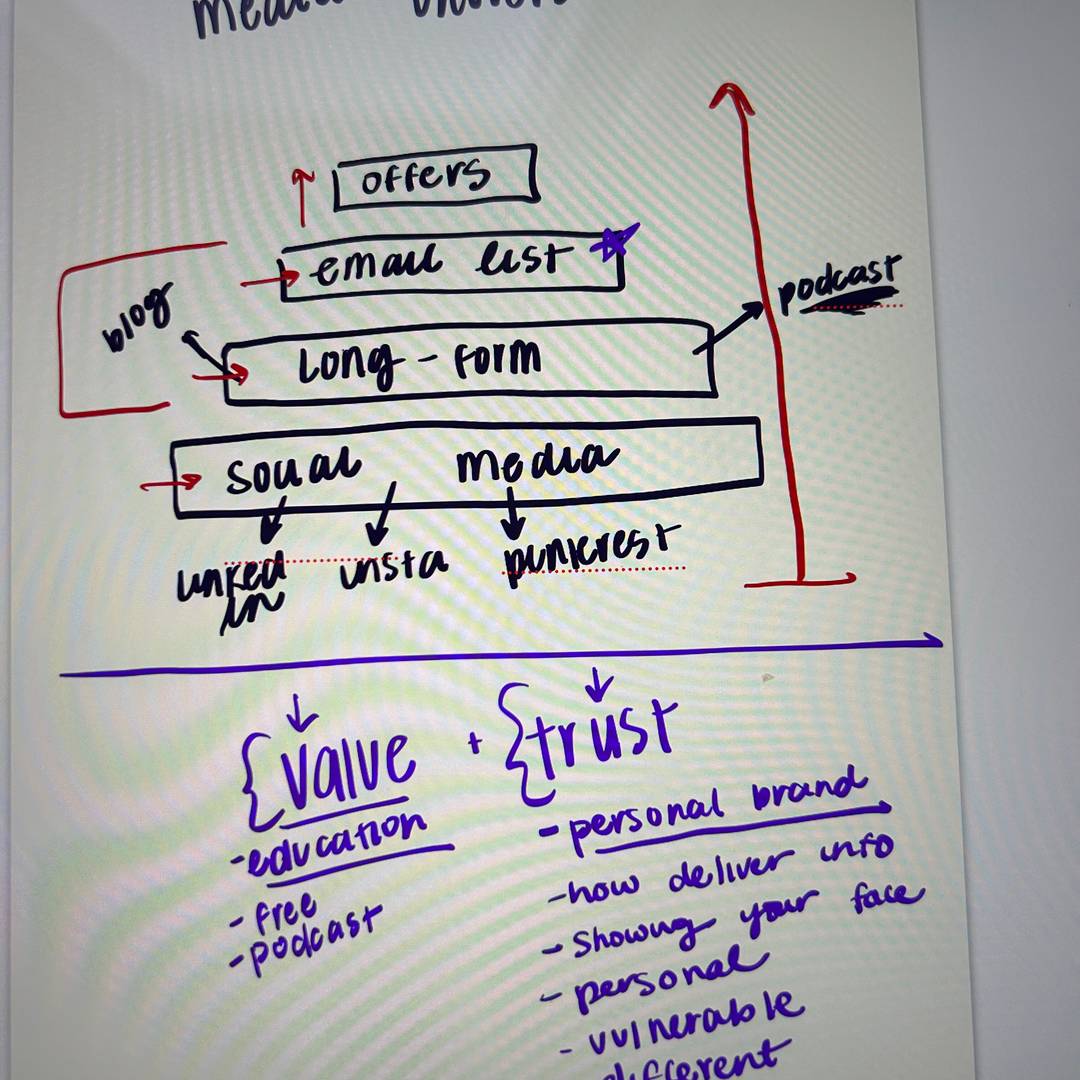 offers
email list
blog
podcast
Long-form
social media
linked insta pinterest
in
{value + {trust
-education
-personal brand
-free
-how deliver info
-podcast
-showing your face
-personal
-vulnerable
different